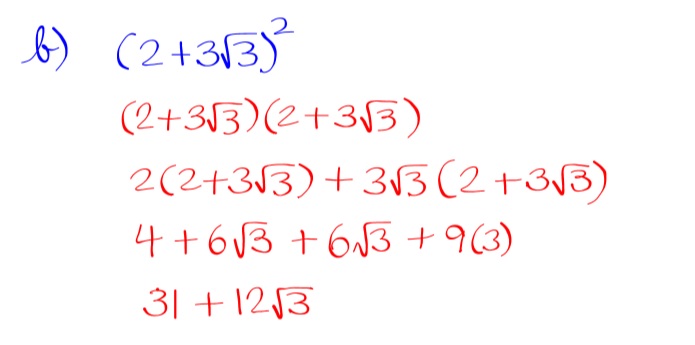 b) (2+3√3)²
(2+3√3)(2+3√3)
2(2+3√3) + 3√3(2+3√3)
4 + 6√3 + 6√3 + 9(3)
31 + 12√3